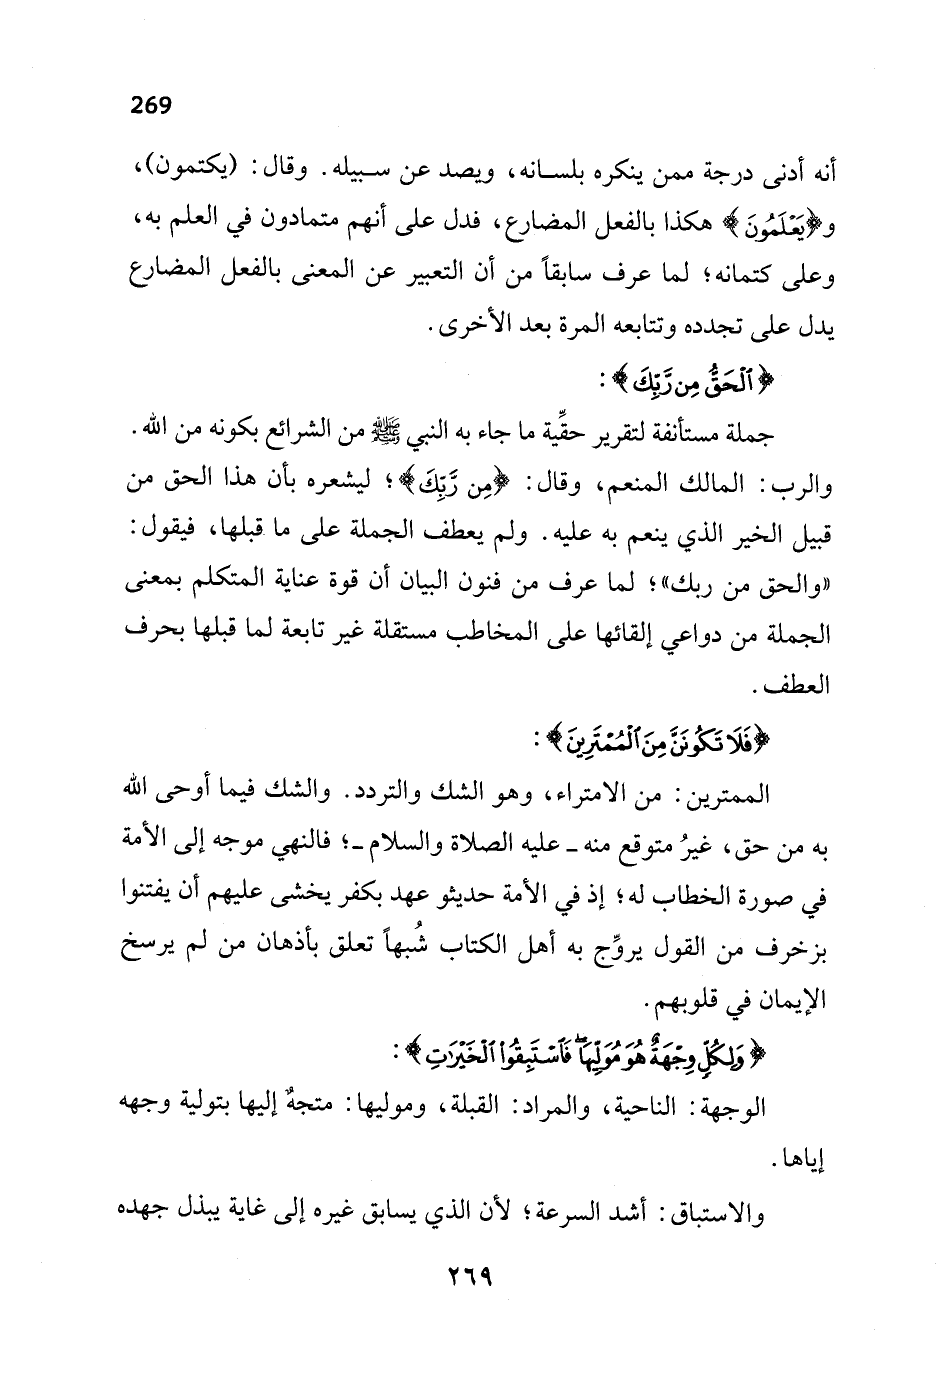 269
أنه أدنى درجة ممن ينكره بلسانه، ويصد عن سبيله. وقال: (يكتمون)،
و﴿يَعْلَمُونَ﴾ هكذا بالفعل المضارع، فدل على أنهم متمادون في العلم به،
وعلى كتمانه؛ لما عرف سابقاً من أن التعبير عن المعنى بالفعل المضارع
يدل على تجدده وتتابعه المرة بعد الأخرى.
﴿ٱلْحَقُّ مِن رَّبِّكَ﴾:
جملة مستأنفة لتقرير حقِّية ما جاء به النبي ﷺ من الشرائع بكونه من الله.
والرب: المالك المنعم، وقال: ﴿مِن رَّبِّكَ﴾؛ ليشعره بأن هذا الحق من
قبيل الخير الذي ينعم به عليه. ولم يعطف الجملة على ما قبلها، فيقول:
«والحق من ربك»؛ لما عرف من فنون البيان أن قوة عناية المتكلم بمعنى
الجملة من دواعي إلقائها على المخاطب مستقلة غير تابعة لما قبلها بحرف
العطف.
﴿فَلَا تَكُونَنَّ مِنَ ٱلْمُمْتَرِينَ﴾:
الممترين: من الامتراء، وهو الشك والتردد. والشك فيما أوحى الله
به من حق، غيرُ متوقع منه ـ عليه الصلاة والسلام ـ؛ فالنهي موجه إلى الأمة
في صورة الخطاب له؛ إذ في الأمة حديثو عهد بكفر يخشى عليهم أن يفتنوا
بزخرف من القول يروِّج به أهل الكتاب شُبهاً تعلق بأذهان من لم يرسخ
الإيمان في قلوبهم.
﴿وَلِكُلٍّ وِجْهَةٌ هُوَ مُوَلِّيهَاۖ فَٱسْتَبِقُوا۟ ٱلْخَيْرَٰتِ﴾:
الوجهة: الناحية، والمراد: القبلة، وموليها: متجهٌ إليها بتولية وجهه
إياها.
والاستباق: أشد السرعة؛ لأن الذي يسابق غيره إلى غاية يبذل جهده
٢٦٩